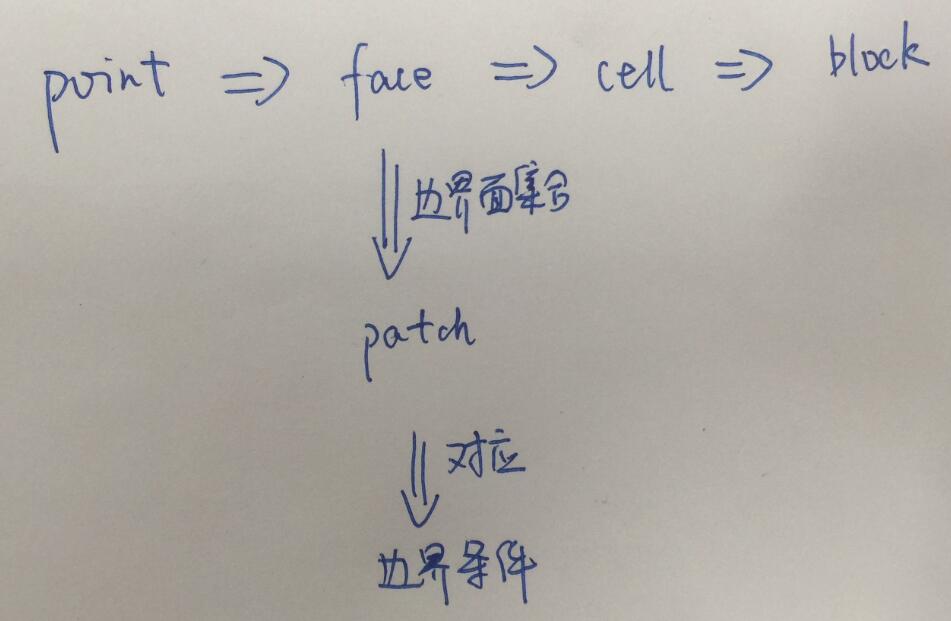 point ⇒ face ⇒ cell ⇒ block
边界面集合
patch
对应
边界条件